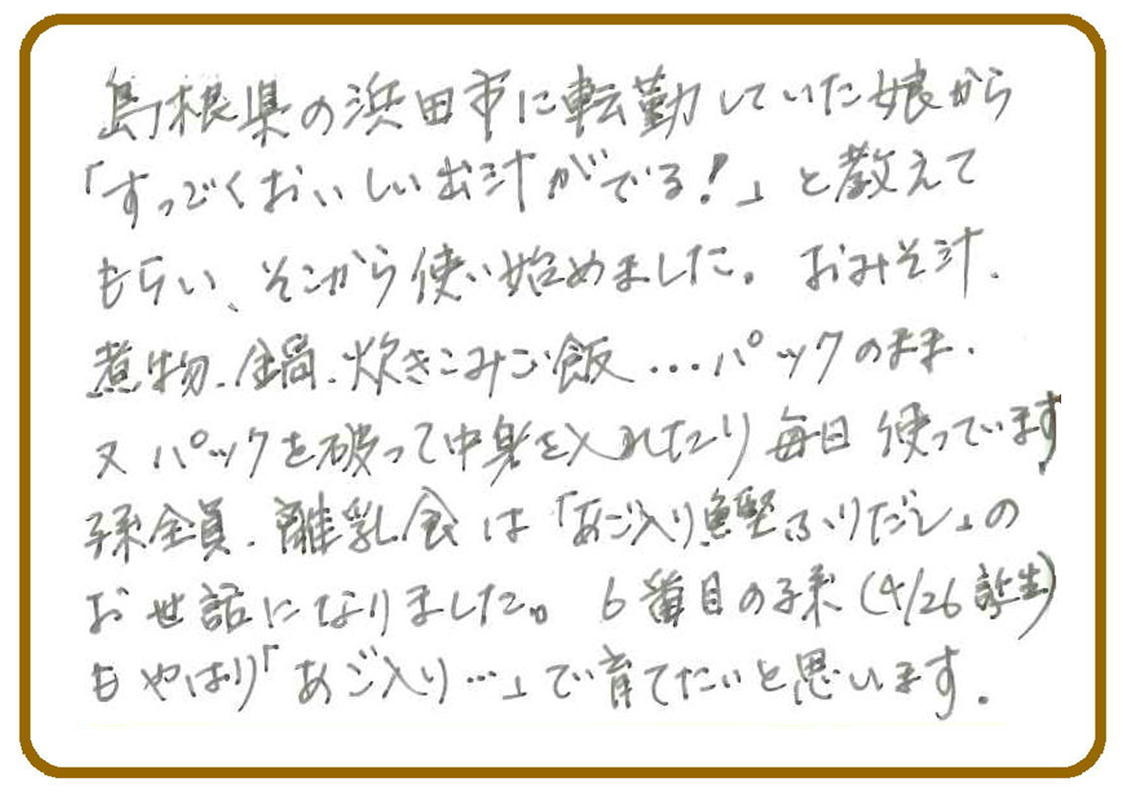 島根県の浜田市に転勤していた娘から
「すっごくおいしい出汁がでる!」と教えて
もらい、そこから使い始めました。おみそ汁、
煮物、鍋、炊きこみご飯…パックのまま、
又パックを破って中身を入れたり毎日使っています
孫全員、離乳食は「あご入り鰹ふりだし」の
お世話になりました。6番目の孫(4/26誕生)
もやはり「あご入り…」で育てたいと思います.